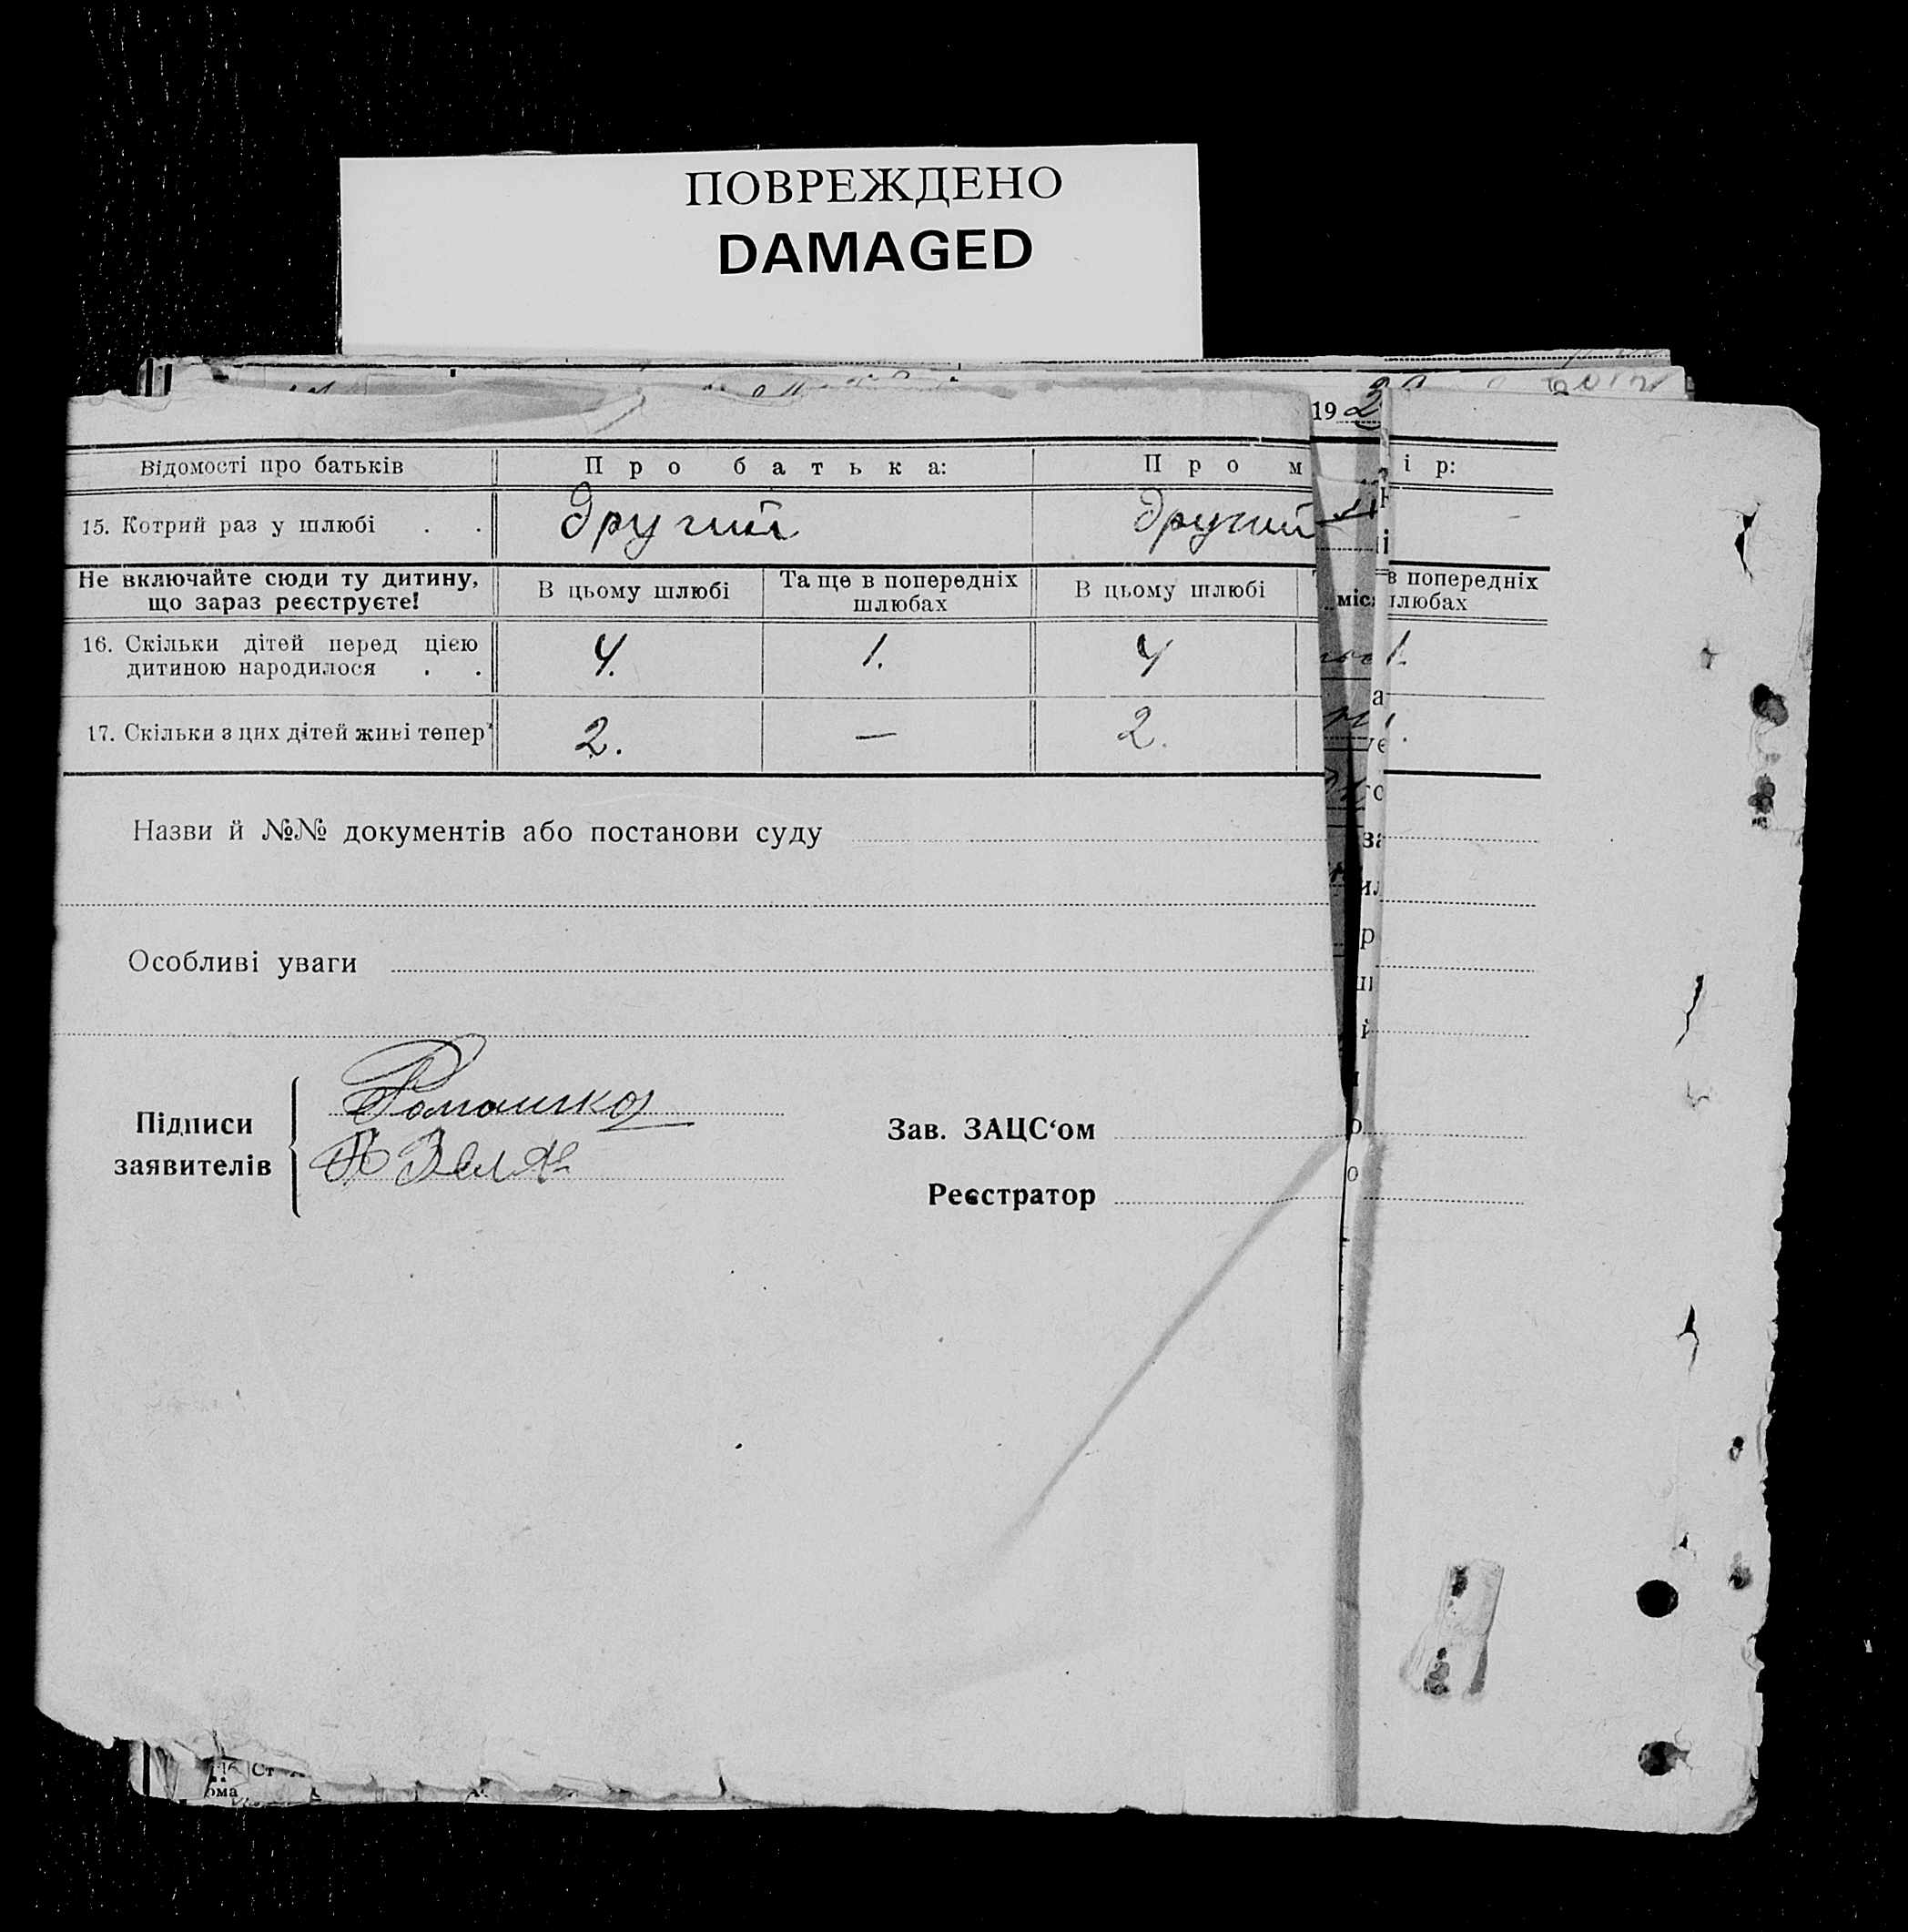 ПОВРЕЖДЕНО
DAMAGED
19 2
Відомості про батьків Про батька: Про м ір:
15. Котрий раз у шлюбі . . Другий Другий
Не включайте сюди ту дитину, що зараз реєструєте! В цьому шлюбі Та ще в попередніх шлюбах В цьому шлюбі в попередніх шлюбах
16. Скільки дітей перед цією дитиною народилося . . 4. 1. 4 1.
17. Скільки з цих дітей живі тепер 2. — 2.
Назви й №№ документів або постанови суду
Особливі уваги
Підписи заявителів
Ромашко
Зав. ЗАЦС‘ом
Реєстратор